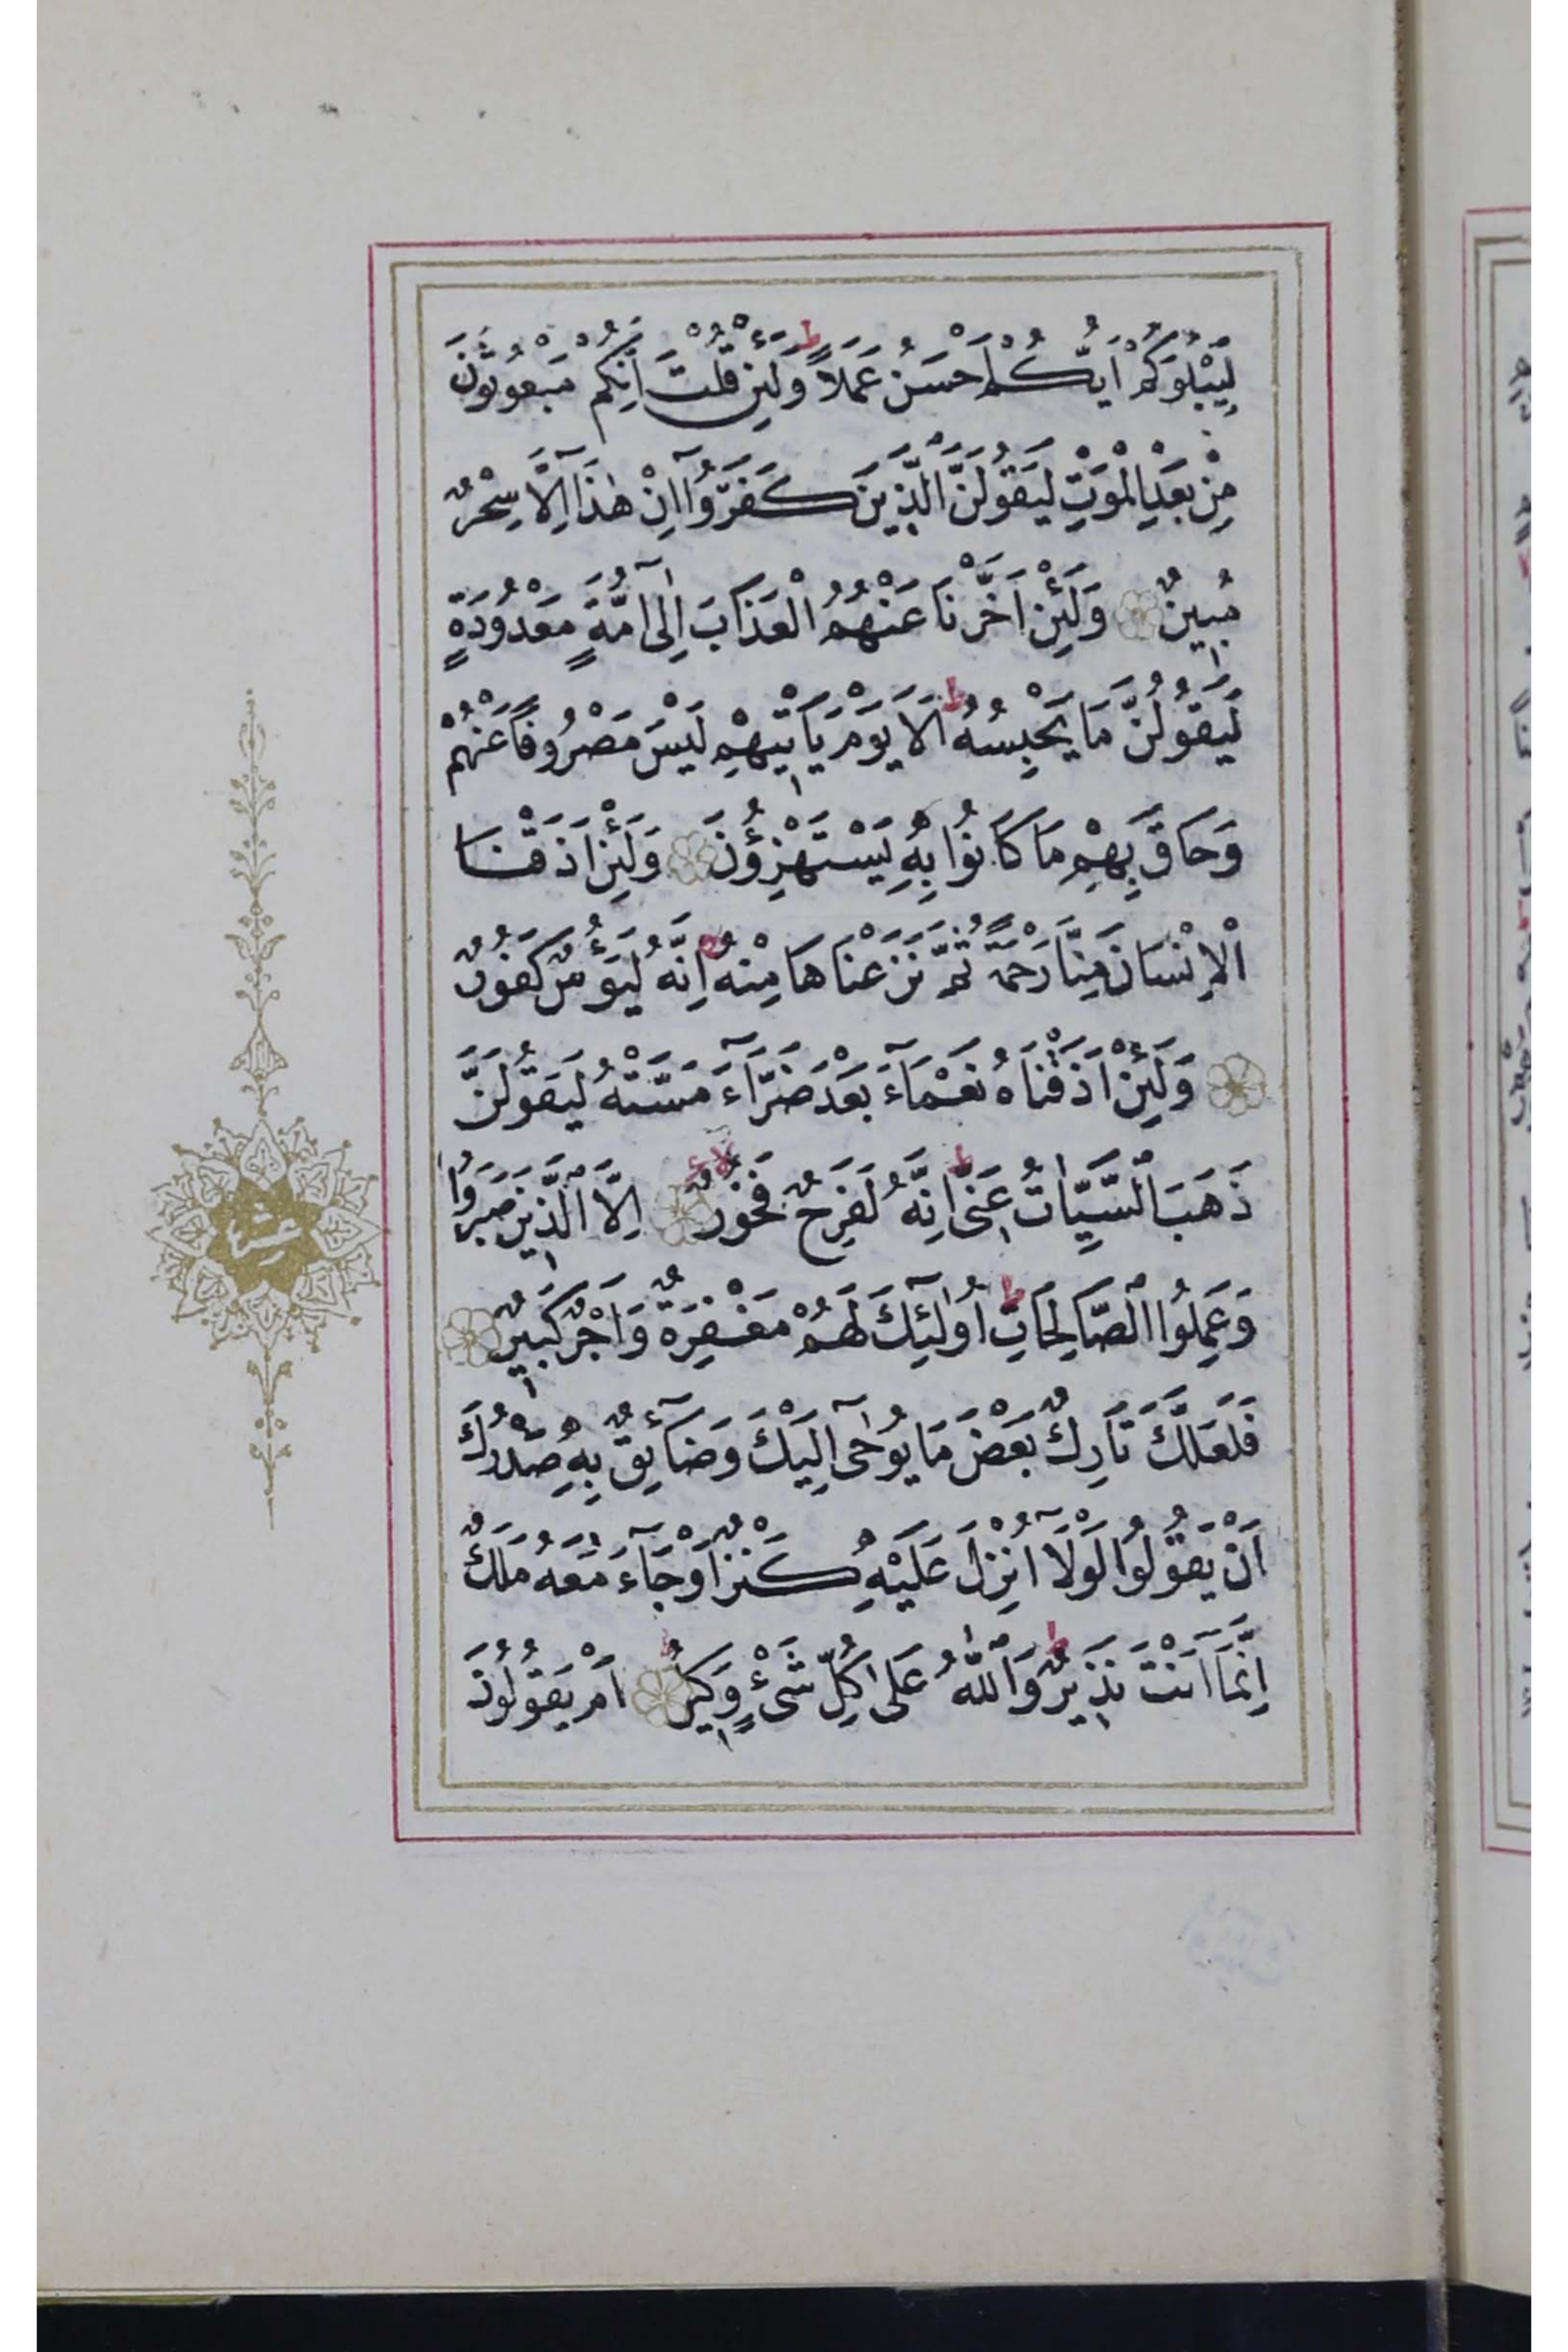 لِيَبْلُوَكُمْ اَيُّكُمْ اَحْسَنُ عَمَلًا ط وَلَئِنْ قُلْتَ اِنَّكُمْ مَبْعُوثُونَ
مِنْ بَعْدِ الْمَوْتِ لَيَقُولَنَّ الَّذِينَ كَفَرُوٓا اِنْ هٰذَٓا اِلَّا سِحْرٌ
مُبِينٌ وَلَئِنْ اَخَّرْنَا عَنْهُمُ الْعَذَابَ اِلٰٓى اُمَّةٍ مَعْدُودَةٍ
لَيَقُولُنَّ مَا يَحْبِسُهُ ط اَلَا يَوْمَ يَاْتِيهِمْ لَيْسَ مَصْرُوفًا عَنْهُمْ
وَحَاقَ بِهِمْ مَا كَانُوا بِهِ يَسْتَهْزِؤُنَ وَلَئِنْ اَذَقْنَا
الْاِنْسَانَ مِنَّا رَحْمَةً ثُمَّ نَزَعْنَاهَا مِنْهُ اِنَّهُ لَيَؤُسٌ كَفُورٌ
وَلَئِنْ اَذَقْنَاهُ نَعْمَآءَ بَعْدَ ضَرَّآءَ مَسَّتْهُ لَيَقُولَنَّ
ذَهَبَ السَّيِّاٰتُ عَنِّى ط اِنَّهُ لَفَرِحٌ فَخُورٌ لا اِلَّا الَّذِينَ صَبَرُوا
وَعَمِلُوا الصَّالِحَاتِ ط اُولٰٓئِكَ لَهُمْ مَغْفِرَةٌ وَاَجْرٌ كَبِيرٌ
فَلَعَلَّكَ تَارِكٌ بَعْضَ مَا يُوحٰٓى اِلَيْكَ وَضَآئِقٌ بِهِ صَدْرُكَ
اَنْ يَقُولُوا لَوْلَٓا اُنْزِلَ عَلَيْهِ كَنْزٌ اَوْ جَآءَ مَعَهُ مَلَكٌ
اِنَّمَٓا اَنْتَ نَذِيرٌ ط وَاللّٰهُ عَلٰى كُلِّ شَىْءٍ وَكِيلٌ ط اَمْ يَقُولُونَ